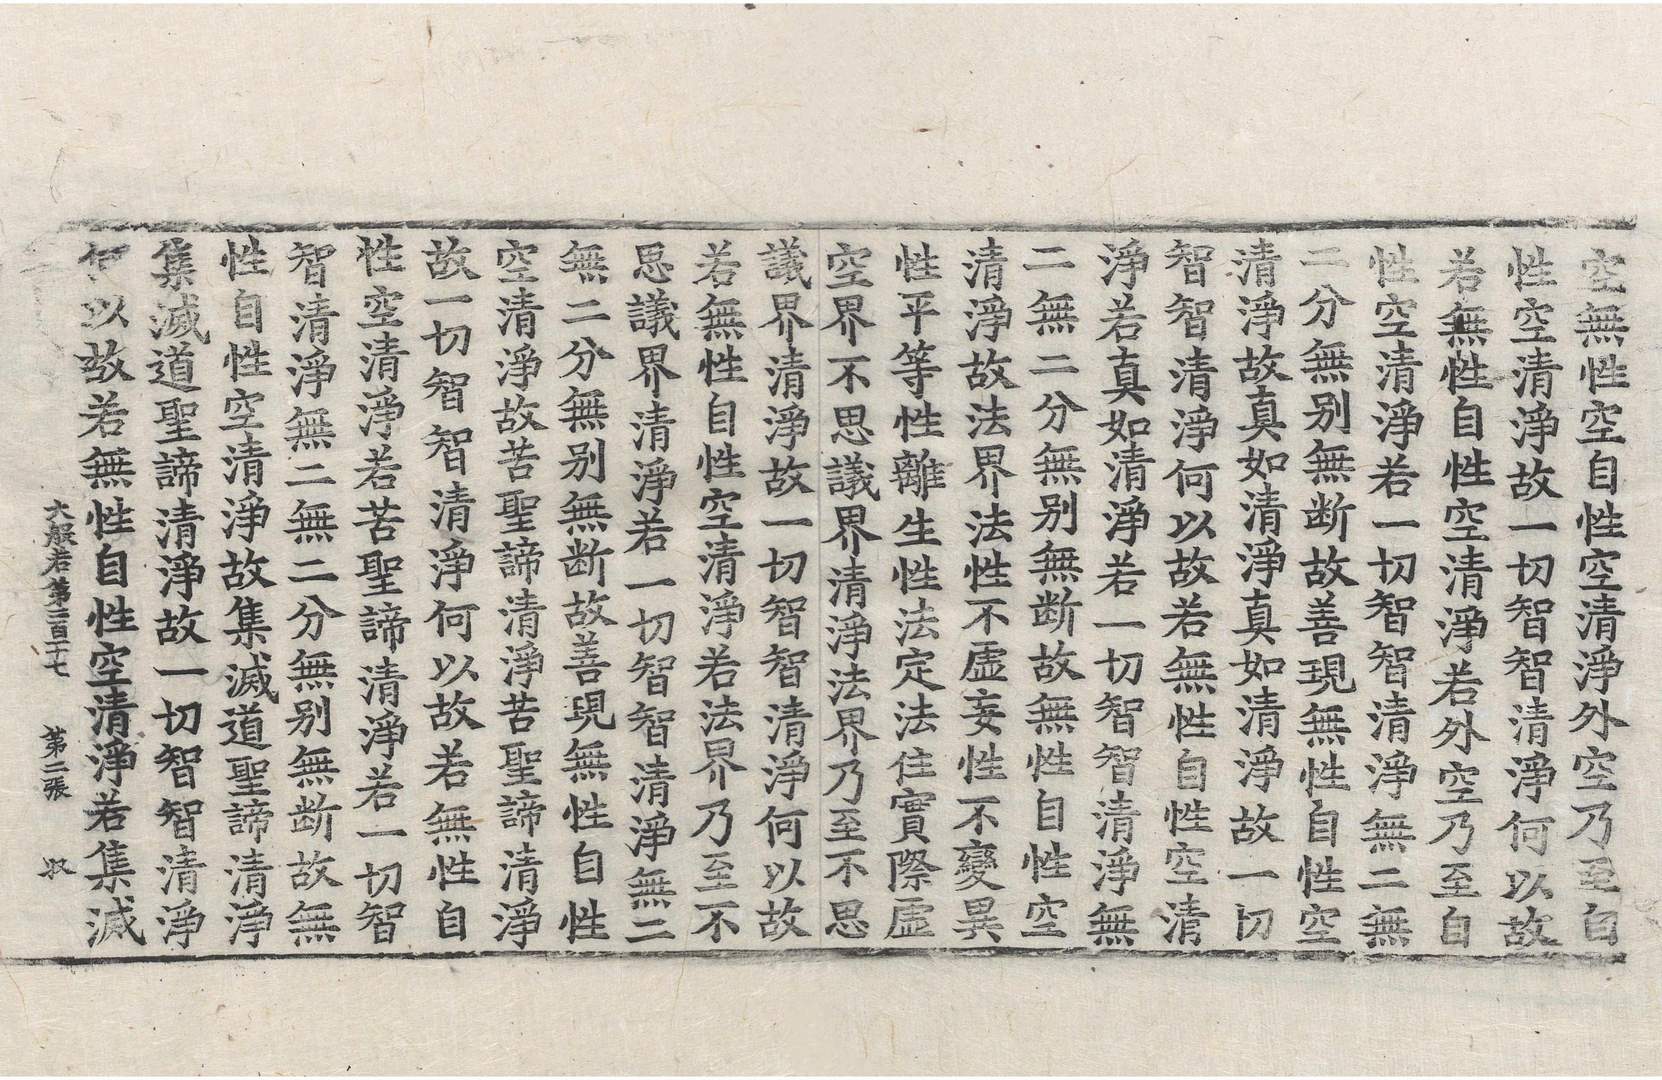 空無性空自性空清淨外空乃至自
性空清淨故一切智智清淨何以故
若無性自性空清淨若外空乃至自
性空清淨若一切智智清淨無二無
二分無別無断故善現無性自性空
清淨故真如清淨真如清淨故一切
智智清淨何以故若無性自性空清
淨若真如清淨若一切智智清淨無
二無二分無別無断故無性自性空
清淨故法界法性不虛妄性不變異
性平等性離生性法定法住實際虛
空界不思議界清淨法界乃至不思
議界清淨故一切智智清淨何以故
若無性自性空清淨若法界乃至不
思議界清淨若一切智智清淨無二
無二分無別無断故善現無性自性
空清淨故苦聖諦清淨苦聖諦清淨
故一切智智清淨何以故若無性自
性空清淨若苦聖諦清淨若一切智
智清淨無二無二分無別無断故無
性自性空清淨故集滅道聖諦清淨
集滅道聖諦清淨故一切智智清淨
何以故若無性自性空清淨若集滅
大般若第二百二十七 第二張 㭍